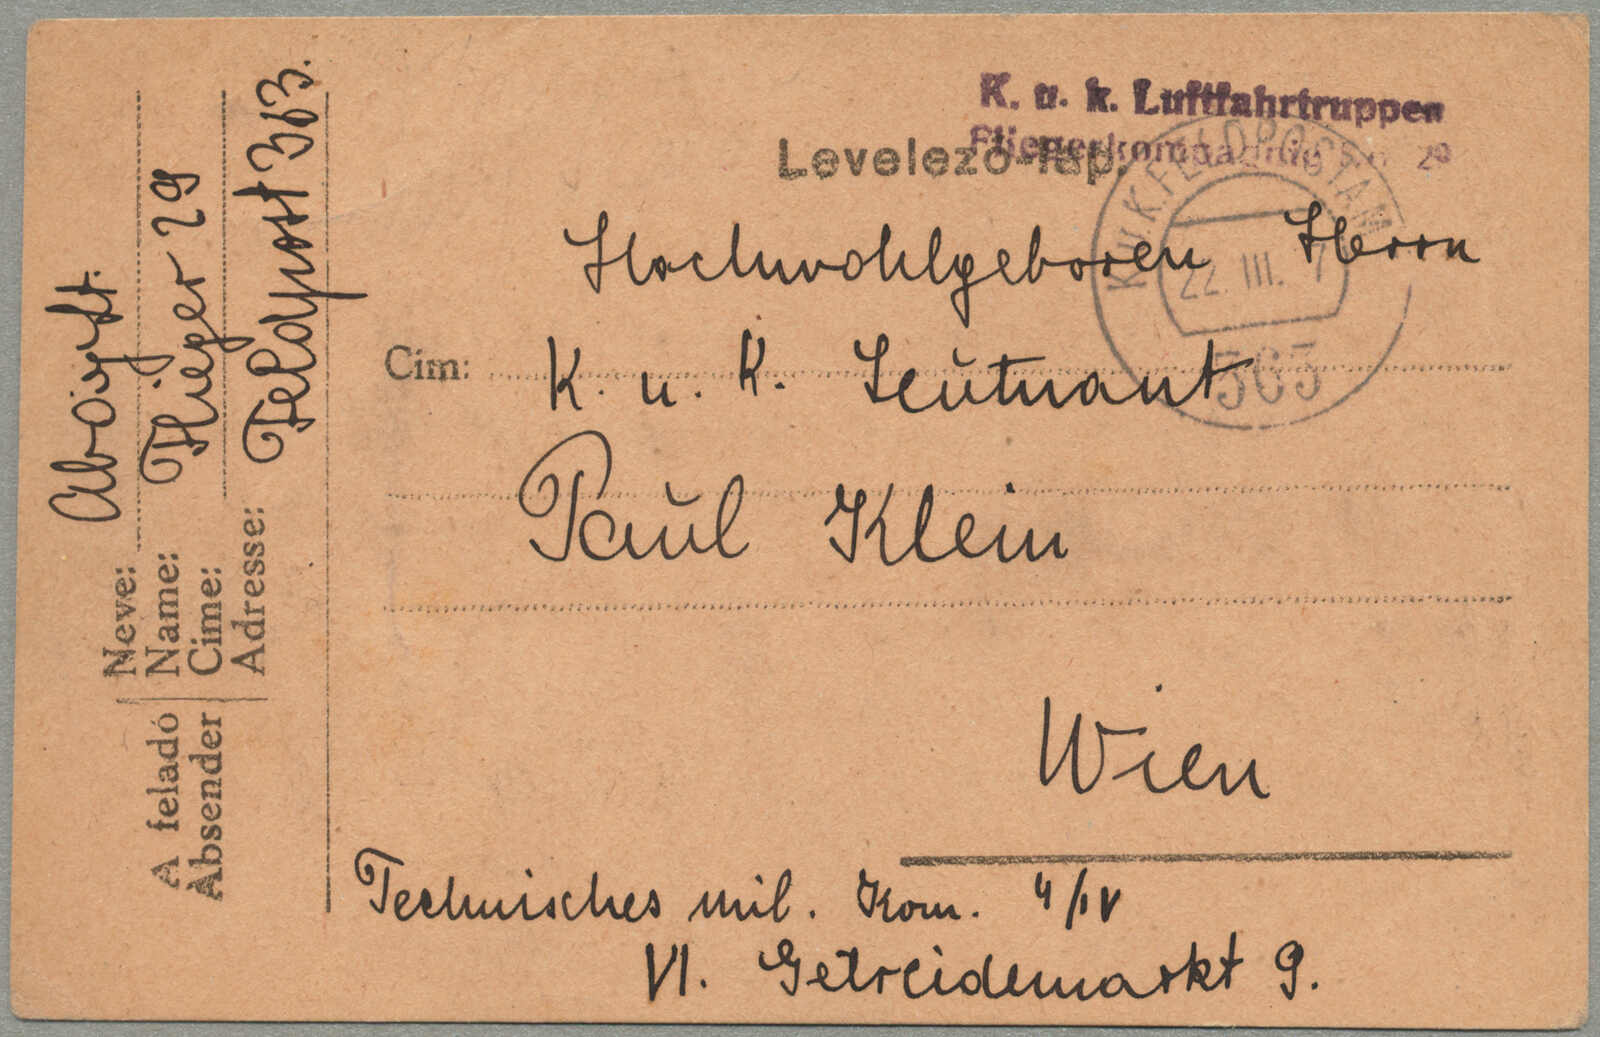 K. u. k. Luftfahrtruppen
Fliegerkompagnie 29
Levelező-lap.
K.u.K. FELDPOSTAMT
22. III. 17
363
Hochwohlgeboren Herrn
Cím: K. u. K. Leutnant
Paul Klein
Wien
Technisches mil. Kom. 4/IV
VI. Getreidemarkt 9.
A feladó
Absender
Neve:
Name:
Címe:
Adresse:
Flieger 29
Feldpost 363.